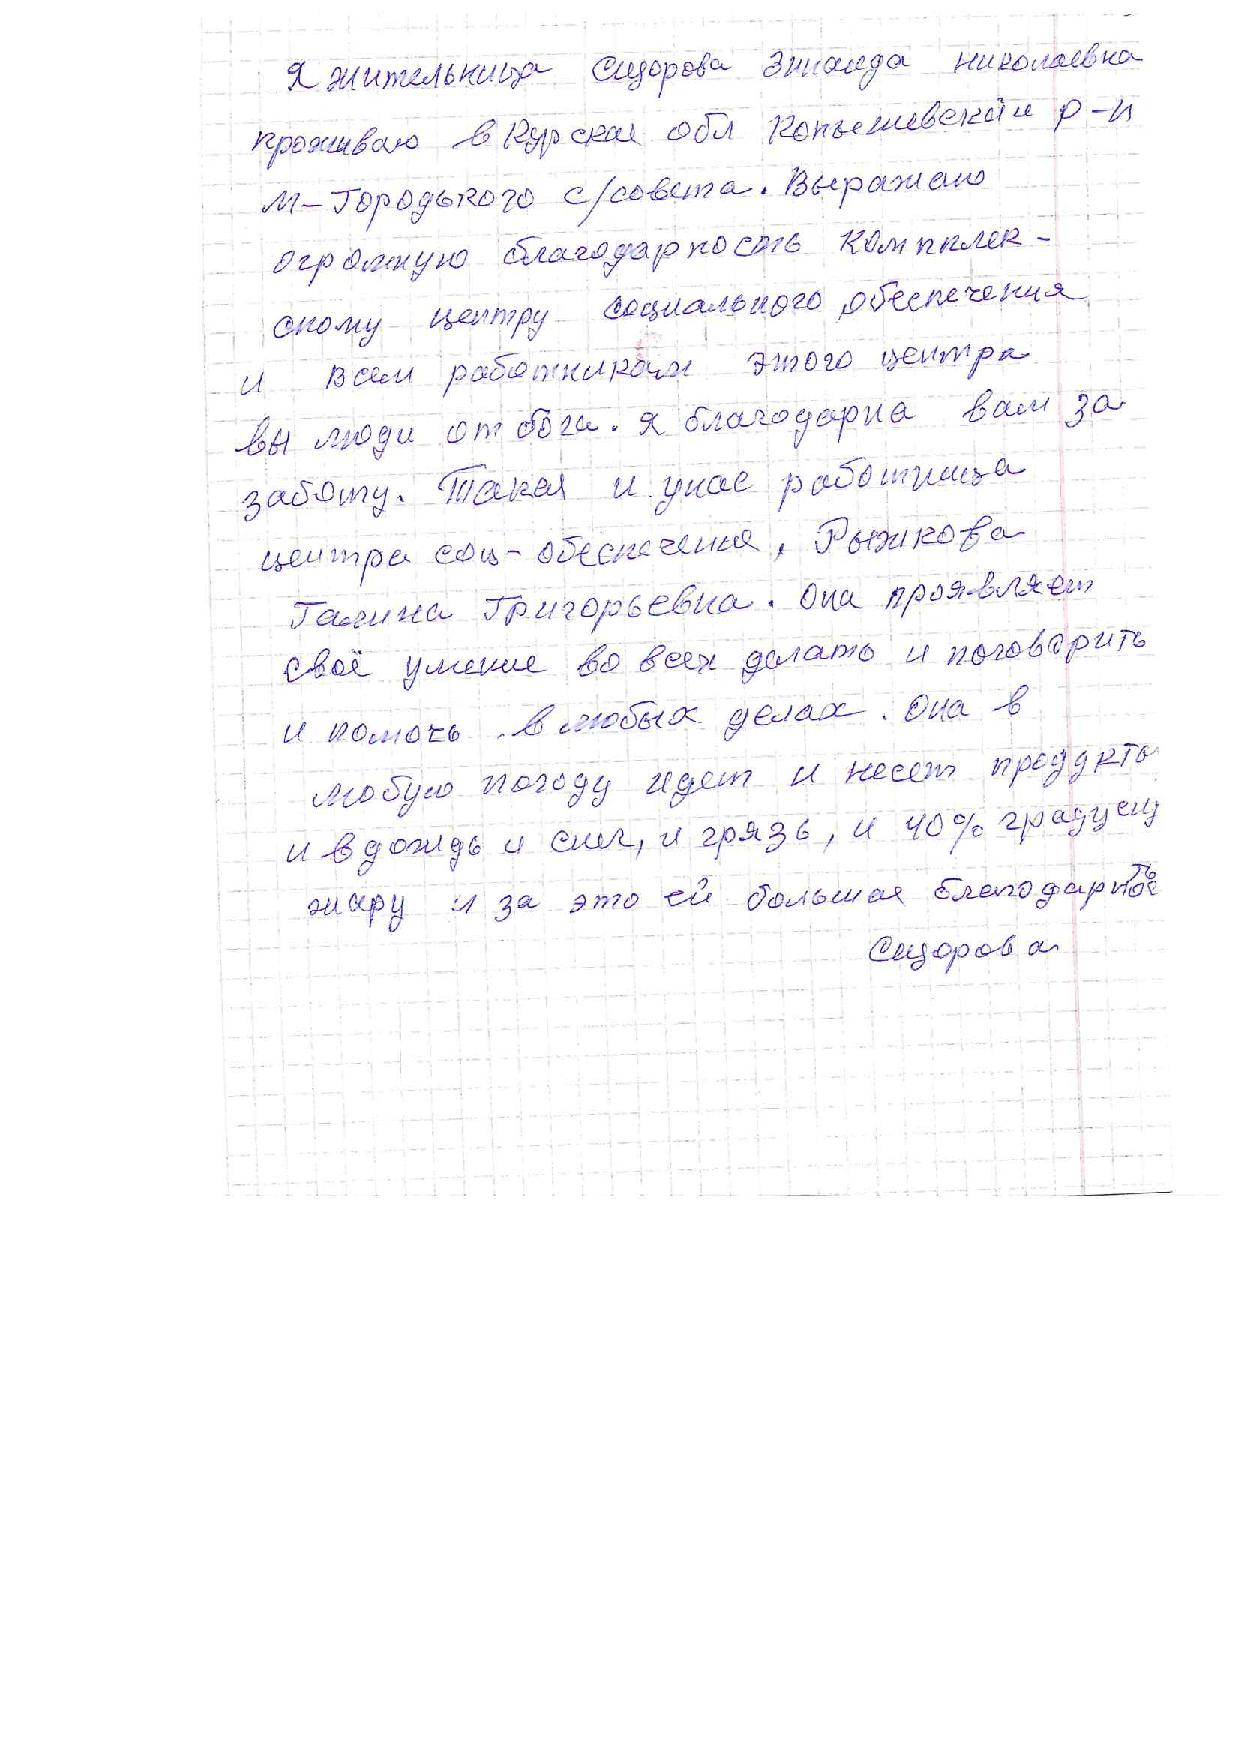 Я жительница Сидорова Зинаида Николаевна
проживаю в Курская обл Конышевский р-н
М-Городького с/совета. Выражаю
огромную благодарность Комплек-
сному центру социального обеспечения
и всем работникам этого центра
вы люди от бога. Я благодарна вам за
заботу. Такая и унас работница
центра соц-обеспечения, Рыжкова
Галина Григорьевна. Она проявляет
своё умение во всех делать и поговорить
и помочь в любых делах. Она в
любую погоду идет и несет продукты
и в дождь и снег, и грязь, и 40% градусную
жару и за это ей большая благодарность
Сидорова